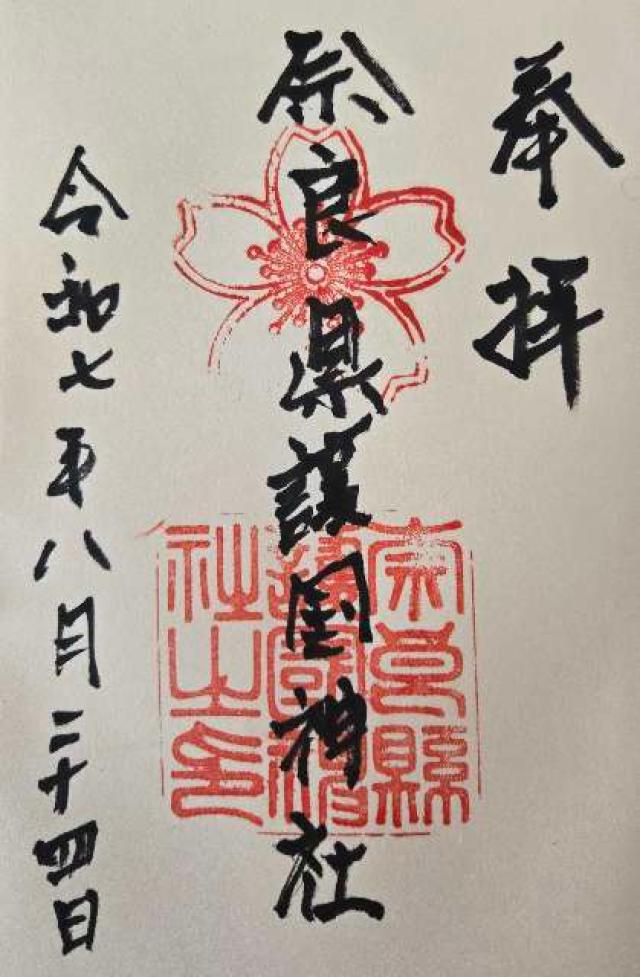 奉拝
奈良県護国神社
奈良縣
護國神
社之印
令和七年八月二十四日